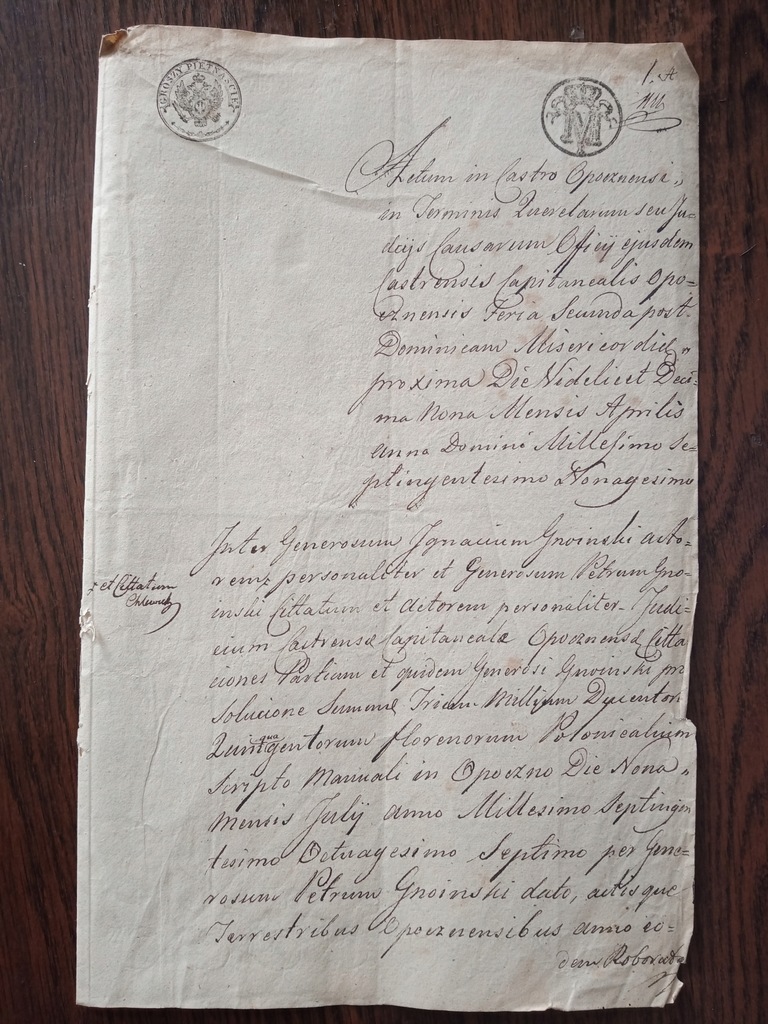 GROSZY PIĘTNAŚCIE
M
Actum in Castro Opocznensi
in Terminis Querelarum seu Ju=
dicijs Causarum Officij ejusdem
Castrensis Capitanealis Opo=
cznensis Feria Secunda post
Dominicam Misericordiæ
proxima Die Videlicet Deci=
ma Nona Mensis Aprilis
anno Domini Millesimo Se=
ptingentesimo Nonagesimo
Inter Generosum Ignacium Gnoinski acto=
rem personaliter et Generosum Petrum Gno=
inski Cittatum et actorem personaliter Judi=
cium Castrense Capitaneale Opocznense Citta
ciones Partium et quidem Generosi Gnoinski pro
Solucione Summæ Trium Millium Ducentor
Quinquagentorum florenorum Polonicalium
Scripto Manuali in Opoczno Die Nona
Mensis Julij anno Millesimo Septingen
tesimo Octuagesimo Septimo per Gene=
rosum Petrum Gnoinski dato, actisque
Terrestribus Opocznensibus anno eo=
dem Roborato
et Cittatum